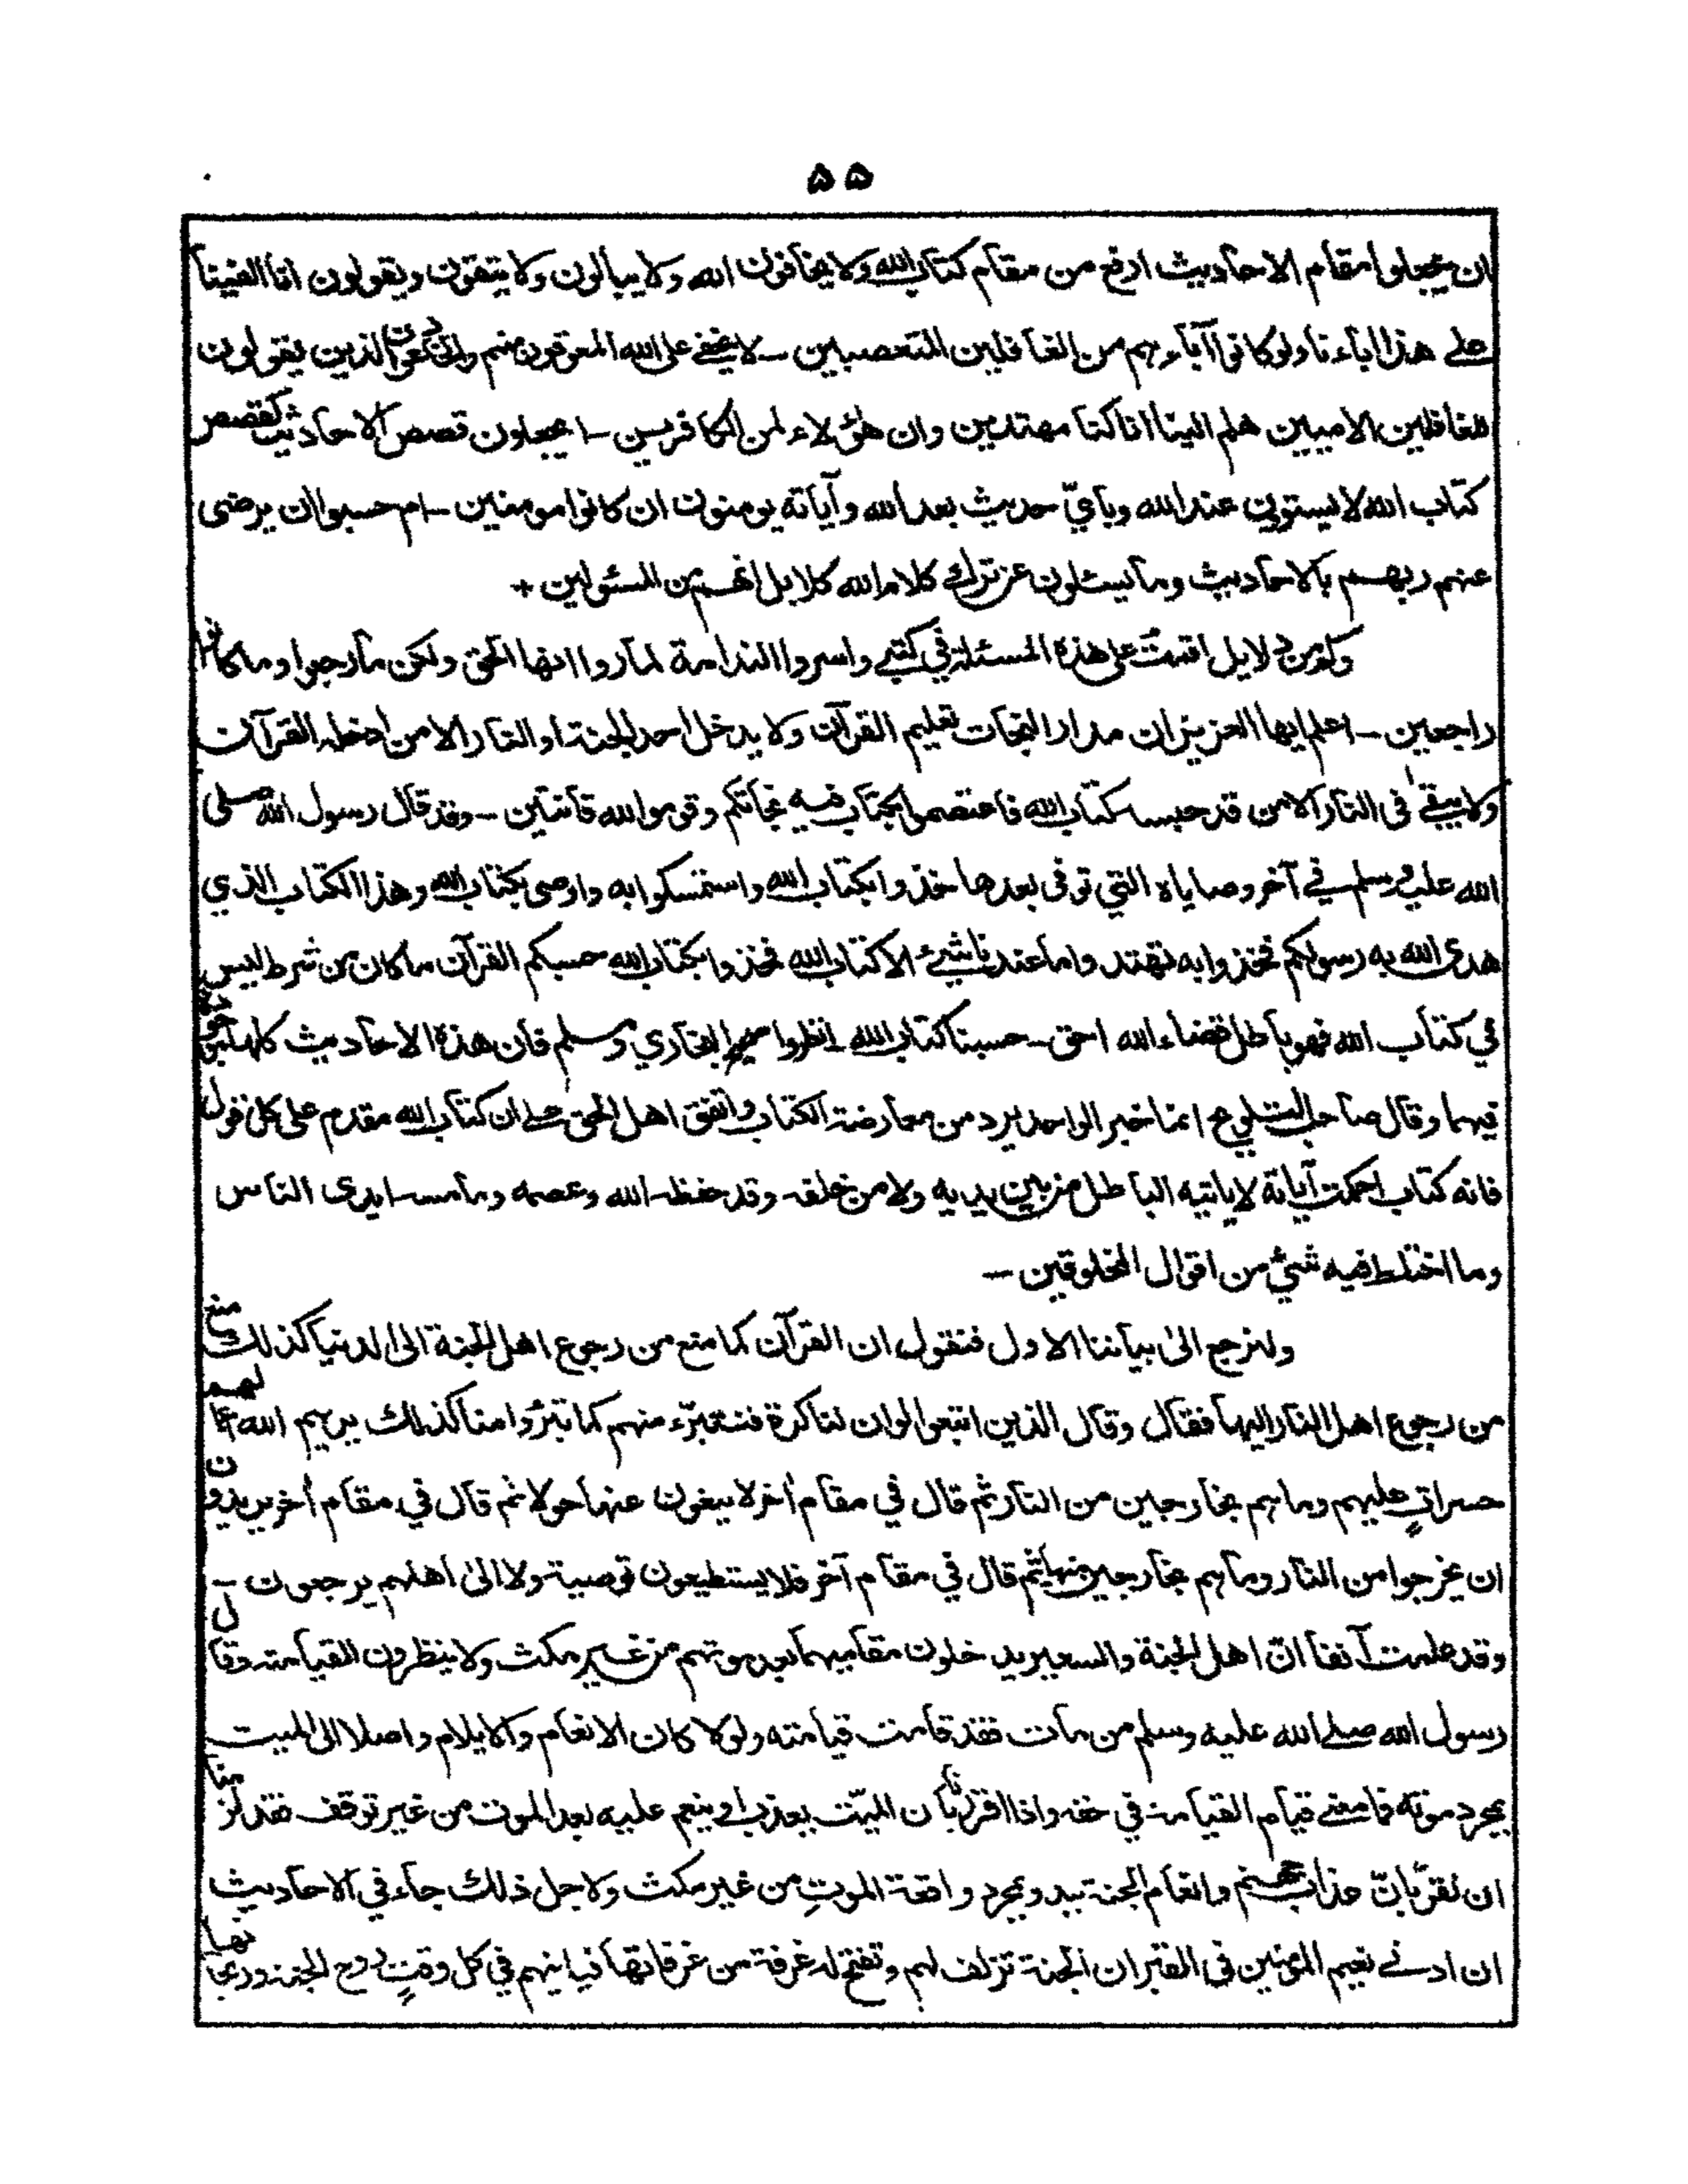 ۵۵
ان يجعلوا مقام الاحاديث ارفع من مقام كتاب الله ولا يخافون الله ولا يبالون ولا يتقون ويقولون انا الفينا
على هذا اباءنا ولو كانوا آباءهم من الغافلين المتعصبين – لا يخفى على الله المعوقون منهم والذين الذين يقولون
للغافلين الاميين هلم الينا انا كنا مهتدين وان هؤلاء لمن الكافرين – ا يجعلون قصص الاحاديث كقصص
كتاب الله لا يستوون عند الله وبايّ حديث بعد الله وآياته يومنون ان كانوا مومنين – ام حسبوا ان يرضى
عنهم ربهم بالاحاديث وما يسئلون عن ترك كلام الله كلا بل انهم من المسئولين +
وكم من دلايل اقمت على هذه المسئلة في كتبى واسروا الندامة لما روا انها الحق ولكن ما رجعوا وما كانوا
راجعين – اعلم ايها العزيز ان مدار النجات تعليم القرآن ولا يدخل احد الجنة او النار الا من ادخله القرآن
ولا يبقى فى النار الا من قد حبسه كتاب الله فاعتصموا بكتاب فيه نجاتكم وقوموا لله قانتين – وقد قال رسول الله صلى
الله عليه وسلم في آخر وصاياه التي توفى بعدها خذوا بكتاب الله واستمسكوا به واوصى بكتاب الله وهذا الكتاب الذي
هدى الله به رسولكم فخذوا به تهتدوا ما عندنا شيء الا كتاب الله فخذوا بكتاب الله حسبكم القرآن ما كان من شرط ليس
في كتاب الله فهو باطل قضاء الله احق – حسبنا كتاب الله – انظروا صحيح البخاري ومسلم فان هذه الاحاديث كلها موجودة
فيهما وقال صاحب التلويح انما خبر الواحد يرد من معارضة الكتاب واتفق اهل الحق على ان كتاب الله مقدم على كل قول
فانه كتاب احكمت آياته لا ياتيه الباطل من بين يديه ولا من خلفه وقد حفظه الله وعصمه وما مسه ايدى الناس
وما اختلط فيه شيء من اقوال المخلوقين –
ولنرجع الى بياننا الاول فنقول ان القرآن كما منع من رجوع اهل الجنة الى الدنيا كذلك منع
من رجوع اهل النار اليها فقال وقال الذين اتبعوا لو ان لنا كرة فنتبرّء منهم كما تبرّؤا منا كذلك يريهم الله اعمالهم
حسراتٍ عليهم وما هم بخارجين من النار ثم قال في مقام أخر لا يبغون عنها حولا ثم قال في مقام أخر يريدون
ان يخرجوا من النار وما هم بخارجين منها ثم قال في مقام آخر فلا يستطيعون توصية ولا الى اهلهم يرجعون –
وقد علمت آنفا انّ اهل الجنة والسعير يدخلون مقاميهما بعد موتهم من غير مكث ولا ينظرون القيامة وقال
رسول الله صلى الله عليه وسلم من مات فقد قامت قيامته ولولا كان الانعام والايلام واصلا الى الميت
بمجرد موته فما معنى قيام القيامة في حقه واذا اقررنا بان الميّت يعذب او ينعم عليه بعد الموت من غير توقف فقد لزمنا
ان نقرّ بانّ عذاب جهنم وانعام الجنة يبدو بمجرد واقعة الموتِ من غير مكث ولاجل ذلك جاء في الاحاديث
ان ادنى نعيم المؤمنين في القبر ان الجنة تزلف لهم وتفتح له غرفة من غرفاتها فياتيهم في كل وقتٍ روح الجنة وريحانها